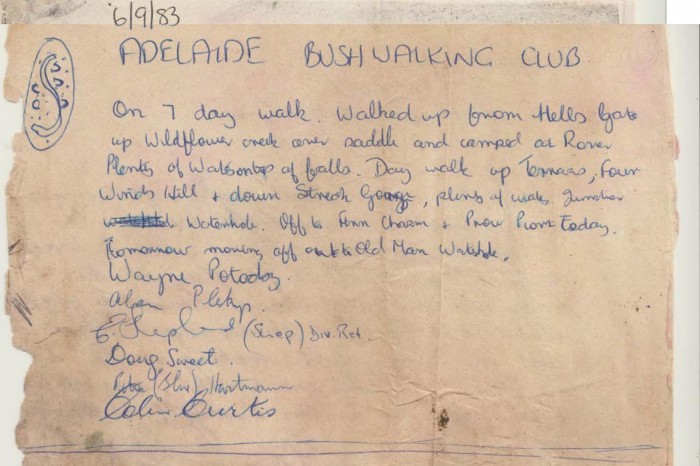 6/9/83
ADELAIDE BUSHWALKING CLUB
On 7 day walk. Walked up from Hells Gate
up Wildflower creek over saddle and camped at
Plenty of Water on top of falls. Day walk up Terraces, Four
Winds Hill + down Gorge, plenty of water Junction
Waterhole. Off to Fern Chasm + Prow Point Today.
Tomorrow morning off out to Old Man Waterhole.
Wayne
Alan
(Shep) Div. Ret.
Doug Sweet.
Hartmann
Colin Curtis